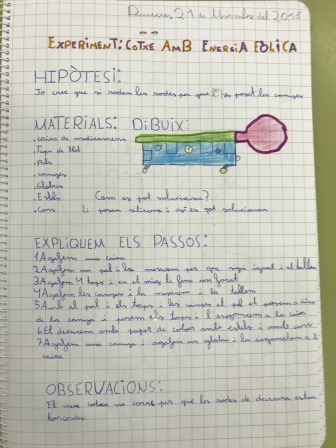 Dimecres, 21 de Novembre del 2018
EXPERIMENT: COTXE AMB ENERGIA EÒLICA
HIPÒTESI:
Jo crec que si rodan les rodes per que l'he posat les canyes
MATERIALS: DIBUIX:
.caixa de medicaments
.Taps de
.Pals
.canyes
.Globus
.Estels Com es pot solucionar?
.Cors Li posem silicona i així es pot solucionar
EXPLIQUEM ELS PASSOS:
1 Agafem una caixa
2 Agafem un pal i les mesurem per que sigui igual i el tallem
3 Agafem 4 taps i en el mig li fem un forat
4 Agafem les canyes i la mesurem i la tallem
5 Amb el pal i els taps i les canyes el pal el posem a dins
de la canya i posem els taps i l'enganxem a la caixa
6 El decorem amb paper de color amb estels i amb cors
7 Agafem una canya i agafem un globus i la enganxem a la
caixa
OBSERVACIONS:
El meu cotxe no corre per que les rodes de darrera estan
torçades.